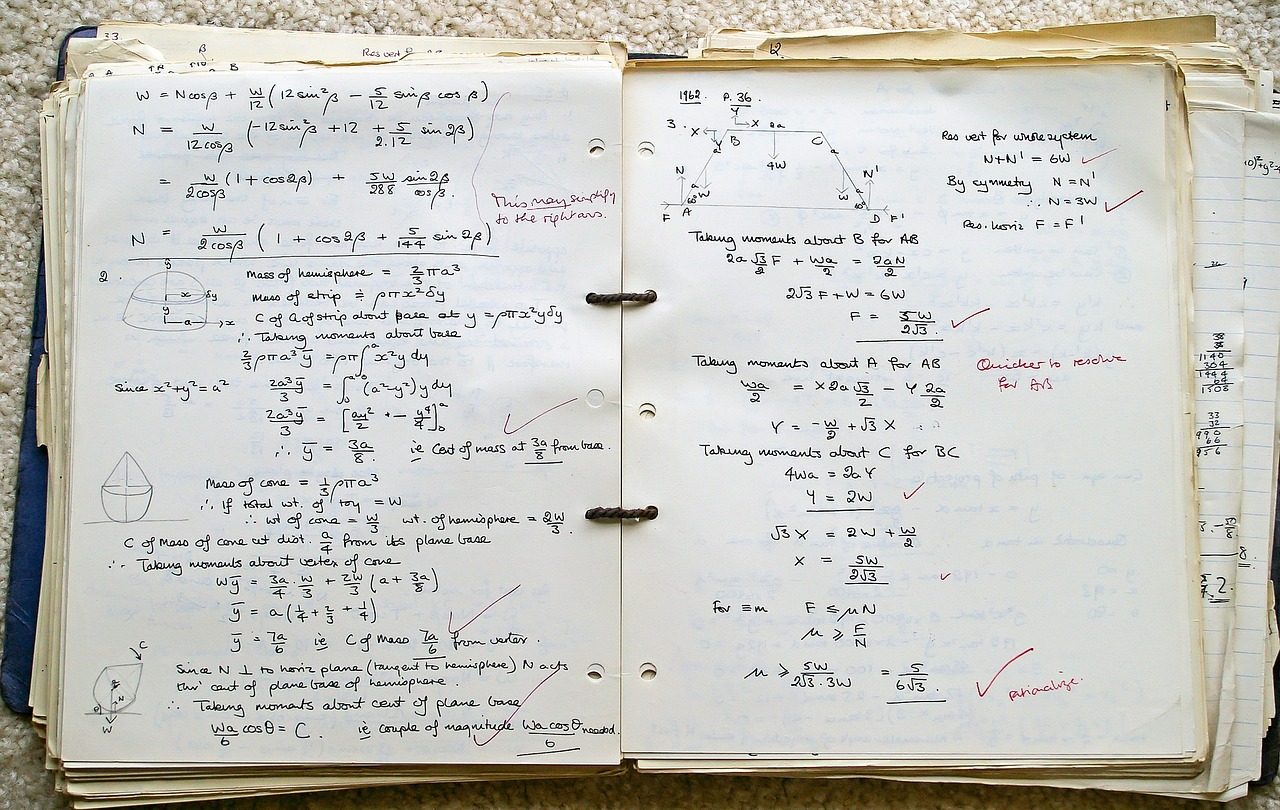 33.
β
Res vert
B
W = Ncosβ + W/12 (12 sin²β − 5/12 sinβ cosβ)
N = W/12cosβ (−12sin²β + 12 + 5/2.12 sin2β)
= W/2cosβ (1 + cos2β) + 5W/288 sin2β/cosβ.
This may simplify
to the right ans.
N = W/2cosβ (1 + cos2β + 5/144 sin2β)
2.
y
x
δy
y
a
x
Mass of hemisphere = 2/3 πa³
Mass of strip ≑ ρπx²δy
C of G of strip about base at y = ρπx²yδy
∴ Taking moments about base
2/3 ρπa³ȳ = ρπ∫₀ᵃ x²y dy
Since x²+y²=a² 2a³ȳ/3 = ∫₀ᵃ (a²−y²)y dy
2a³ȳ/3 = [ay²/2 − y⁴/4]₀ᵃ
∴ ȳ = 3a/8 ie Cent of mass at 3a/8 from base.
Mass of cone = 1/3 ρπa³
∴ If total wt. of toy = W
∴ wt of cone = W/3 wt. of hemisphere = 2W/3.
C of Mass of cone at dist. a/4 from its plane base
∴ Taking moments about vertex of cone
Wȳ = 3a/4 . W/3 + 2W/3 (a + 3a/8)
ȳ = a(1/4 + 2/3 + 1/4)
ȳ = 7a/6 ie C of Mass 7a/6 from vertex.
C
θ
N
W
Since N ⊥ to horiz plane (tangent to hemisphere) N acts
thro' cent of plane base of hemisphere.
∴ Taking moments about cent of plane base
Wa/6 cosθ = C. ie couple of magnitude Wa cosθ/6 needed.
1962. P. 36.
3. X Y X 2a
B C
a a
4W
N a a N'
W W
60° 60°
F A D F'
Res vert for whole system
N+N' = 6W
By symmetry N = N'
∴ N = 3W
Res. horiz F = F'
Taking moments about B for AB
2a √3/2 F + Wa/2 = 2aN/2
2√3 F + W = 6W
F = 5W/2√3.
Taking moments about A for AB
Quicker to resolve
for AB
Wa/2 = X 2a √3/2 − Y 2a/2
Y = −W/2 + √3 X
Taking moments about C for BC
4Wa = 2aY
Y = 2W
√3 X = 2W + W/2
X = 5W/2√3
For ≡m F ≤ μN
μ ≥ F/N
μ ≥ 5W/2√3.3W = 5/6√3.
rationalize.
38
38
1140
304
1444
64
1508
33
32
990
66
956